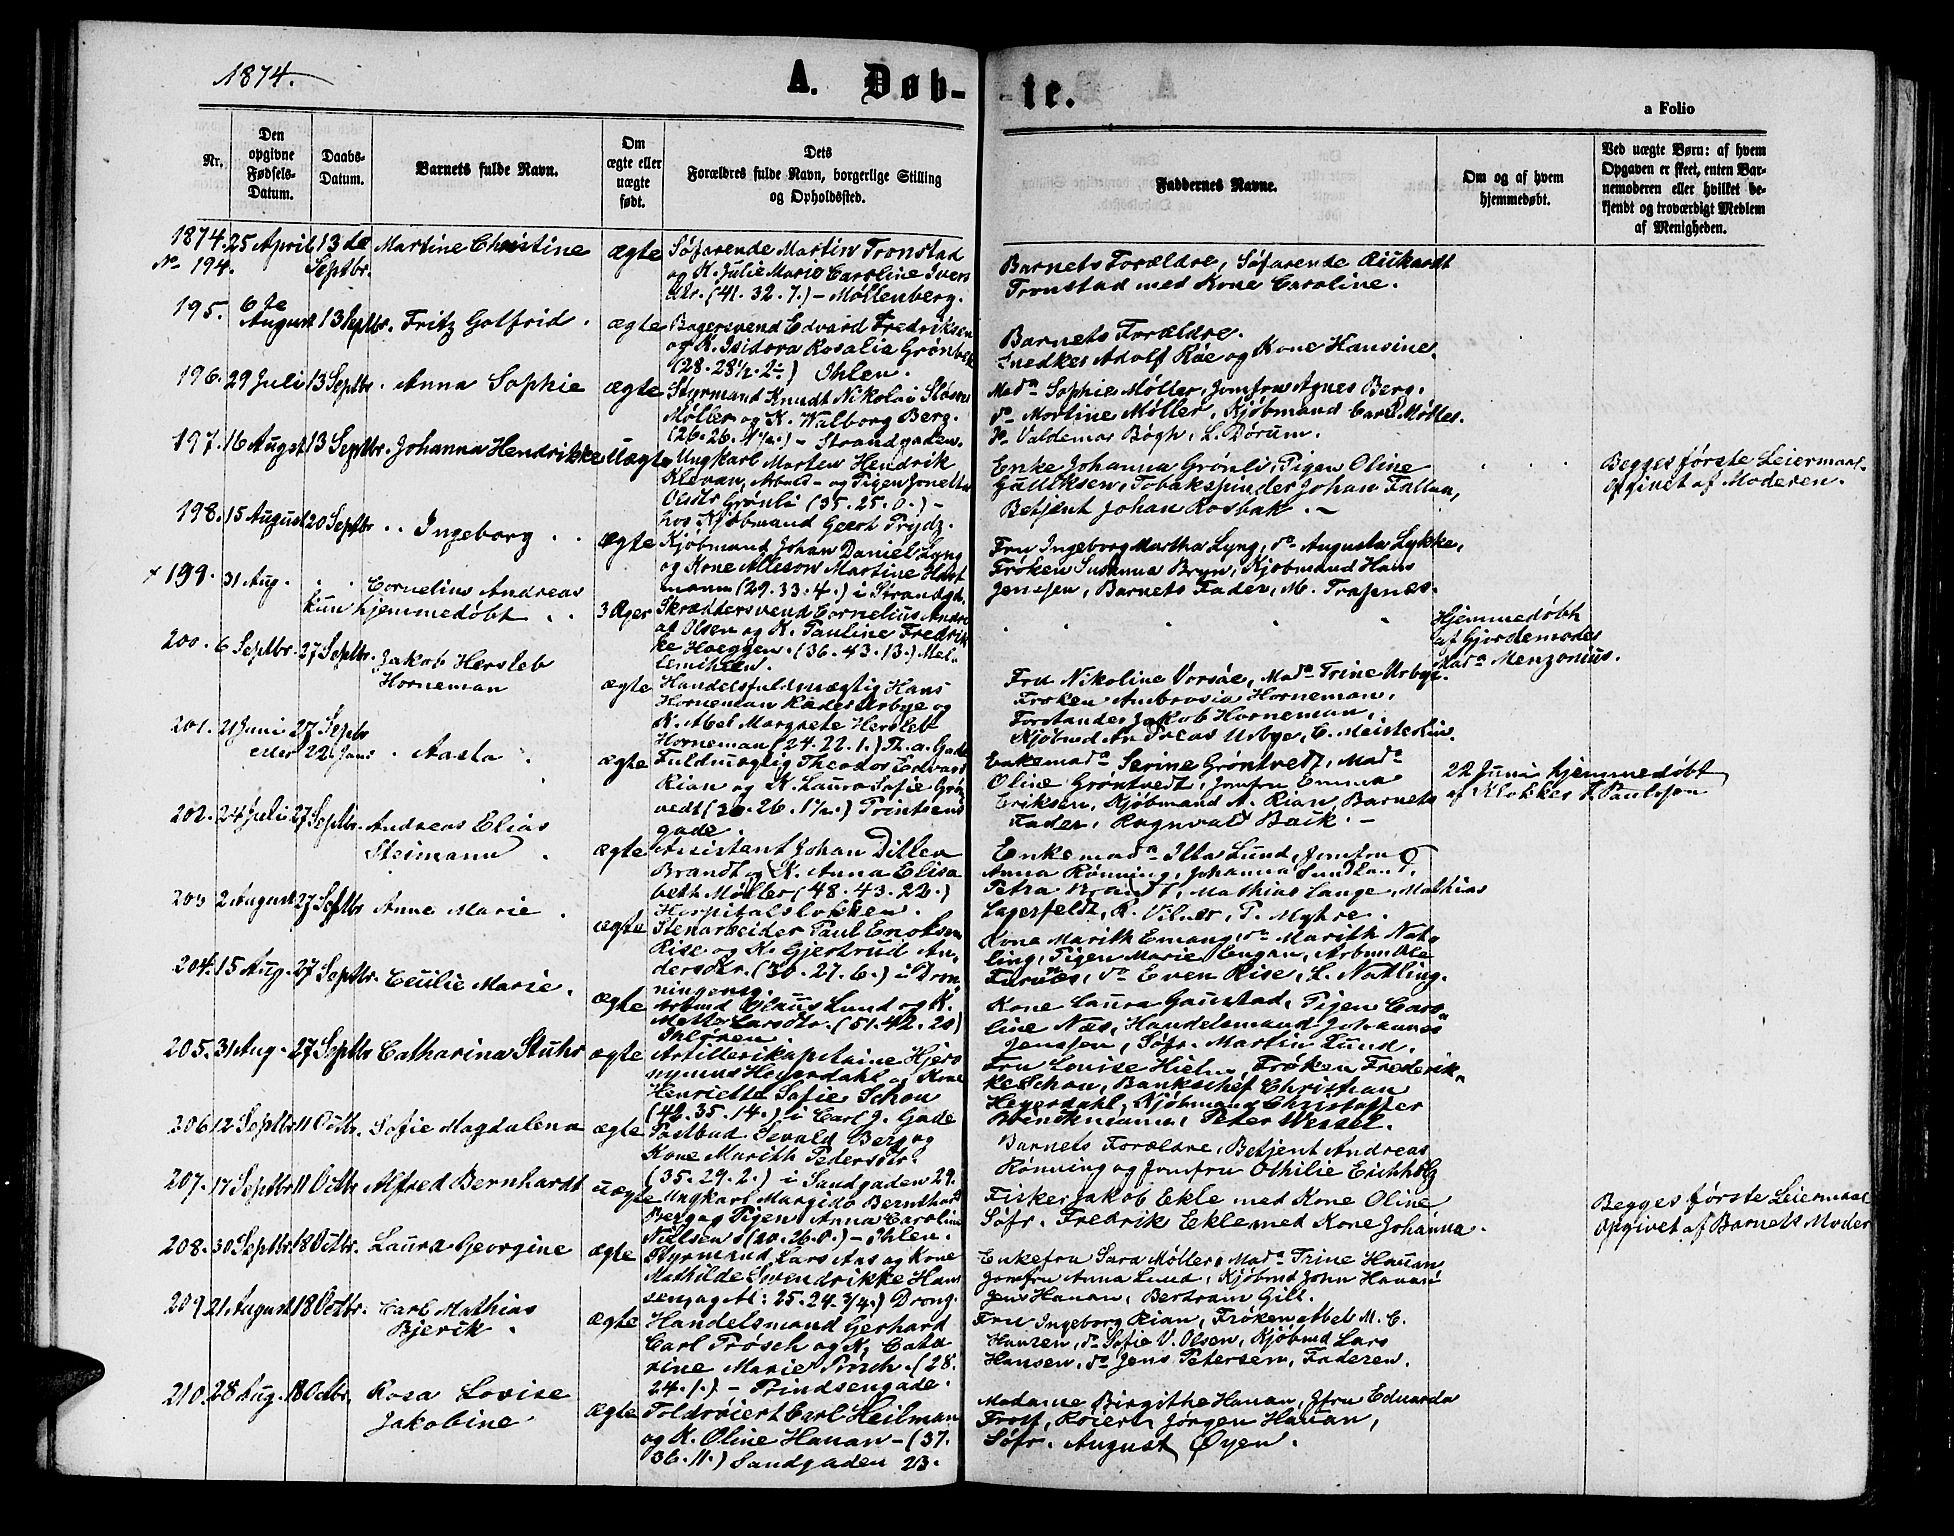 1874.
A. Døb-
-te.
a Folio
Nr.
Den
opgivne
Fødsels-
Datum.
Daabs-
Datum.
Barnets fulde Navn.
Om
ægte eller
uægte
født.
Dets
Forældres fulde Navn, borgerlige Stilling
og Opholdssted.
Faddernes Navne.
Om og af hvem
hjemmedøbt.
Ved uægte Børn: af hvem
Opgaven er skeet, enten Bar-
nemoderen eller hvilket be-
kjendt og troværdigt Medlem
af Menigheden.
1874. 25 April 13 de Martine Christine ægte Søfarende Martin Tronstad
No 194. Septbr. og K. Julie Marie Caroline Ivers
dtr. (41. 32. 7.) - Møllenberg.
Barnets Forældre, Søfarende Rickardt
Tronstad med Kone Caroline.
195. 6 te August 13 Septbr. Fritz Gotfrid. ægte Bagersvend Edvard Fredriksen
og K. Isidora Rosalia Grønbek
(28. 28½. 2) Ihlen.
Barnets Forældre.
Snedker Adolf Røe og Kone Hansine.
196. 29 Juli 13 Septbr. Anna Sophie ægte Styrmand Knudt Nikolai
Møller og K. Walborg Berg.
(26. 26. 1½.) - Strandgaden.
Mada Sophie Møller, Jomfru Agnes Berg.
do Martine Møller, Kjøbmand Carl Møller.
do Valdemar Bøgh, L. Dørum.
197. 16 Augst 13 Septbr. Johanna Hendrikke Uægte Ungkarl Morten Hendrik
Klevan, Arbmd - og Pigen Jonetta
Olsdtr Grønli (35. 25. 0.) -
hos Kjøbmand Geert Prydz.
Enke Johanna Grønli, Pigen Oline
Gulliksen, Tobakspinder Johan Fallan,
Betjent Johan Rosbak. -
Begges første Leiermaal.
opgivet af Moderen.
198. 15 August 20 Septbr. Ingeborg ægte Kjøbmand Johan Daniel Lyng
og Kone Martine Hart
mann (29. 33. 4.) i Strandgt.
Fru Ingeborg Martha Lyng, do Augusta Lykke,
Frøken Susanna Bryn, Kjøbmand Hans
Jenssen, Barnets Fader, M. Trapnes.
199. 31 Aug. Cornelius Andreas
kun hjemmedøbt 3 Æger Skræddersvend Cornelius Andre
as Olsen og K. Pauline Fredrik
ke Hoeggen. (36. 43. 13.) Mel-
lemihlen.
Hjemmedøbt
af Gjordemoder
Mada Menzonius.
200. 6 Septbr. 27 Septbr. Jakob Hersleb
Horneman ægte Handelsfuldmægtig Hans
Horneman Ræder Urbye og
K. Abel Margrete Hersleb
Horneman (24. 22. 1.) Th. a. Gade
Fru Nikoline Vorsøe, Mada Trine Urbye.
Frøken Ambrosia Horneman,
Forstander Jakob Horneman,
Kjøbmd Andreas Urbye, C. Meisterlin.
201. 21 Juni 27 Septbr
eller 22 Juni Aasta ægte Fuldmægtig Theodor Edvard
Rian og K. Laura Sofie Grøn
vedt (30. 26. 1½.) Printsens
gade.
Enkemada Serine Grøntvedt, Mada
Oline Grøntvedt, Jomfru Emma
Eriksen, Kjøbmand A. Rian, Barnets
Fader, Ragnvald Baik. -
22 Juni hjemmedøbt
af Klokker P. Paulsson
202. 24 Juli 27 Septbr. Andreas Elias
Steimann ægte Assistent Johan Ditlev
Brandt og K. Anna Elisa
beth Møller (48. 43. 22.)
Hospitalsløkken.
Enkemada Ilta Lund, Jomfru
Anna Rønning, Johanna Sundland,
Petra Brandt, Mathias Lange, Mathias
Lagerfeldt, R. Vilner, P. Myhre.
203 2 August 27 Septbr Anne Marie ægte Stenarbeider Paul Enoksen
Rise og K. Gjertrud An-
dersdtr. (30. 27. 6.) i Dron-
ningensg.
Kone Marith Emang, do Marith Nat-
ling, Pigen Marie Engan, Arbm Ole
Furnes, do Even Rise, L. Natling.
204. 15 Aug. 27 Septbr. Cecilie Marie. ægte Arbmd Claus Lund og K.
Mette Larsdtr. (51. 42. 20)
Ihleren.
Kone Laura Gaustad, Pigen Caro-
line Næs, Handelsmand Johannes
Jenssen, Søfr. Martin Lund.
205. 31 Aug. 27 Septbr Catharina Stuhr ægte Artillerikapitaine Hjero
nymus Heyerdahl og Kone
Henriette Sofie Schou
(42. 35. 14.) i Carl J. Gade
Fru Lovise Hielm, Frøken Frederik-
ke Schou, Bankschef Christian
Heyerdahl, Kjøbmand Christoffer
Brinchmann, Peter Wessel.
206 12 Septbr 11 Octbr. Sofie Magdalena ægte Postbud Sevald Berg og
Kone Marith Pedersdtr.
(35. 29. 2.) i Sandgaden 29.
Barnets Forældre, Betjent Andreas
Rønning og Jomfru Othilie Eichholz
207. 17 Septbr 11 Octbr Alfred Bernhardt uægte Ungkarl Bernthard
Berg og Pigen Anna Caroline
Nielsen (20. 26. 0.) - Ihlen.
Fisker Jakob Ekle med Kone Oline
Søfr. Fredrik Ekle med Kone Johanna.
Begges første Leiermaal
Opgivet af Barnets Moder
208. 30 Septbr 18 Octbr. Laura Georgine ægte Styrmand Lars Aas og Kone
Mathilde Svendrikke Han
sen 25. 24. 3/4.) Drong.
Enkefru Sara Møller, Mada Trine Hauan
Jomfru Anna Lund, Kjøbmd John Hauan
Jens Hauan, Bertram Gill.
209. 21 August 18 Octbr. Carl Mathias
Bjerik. ægte Handelsmand Gerhard
Carl Prøsch og K. Catha
rine Marie Prøsch. (28.
24. 1.) - Prindsengade.
Fru Ingeborg Rian, Frøken Abbel M. C.
Hansen, do Sofie V. Olsen, Kjøbmd Lars
Hansen, do Jens Petersen, Faderen.
210. 28 Aug. 18 Octbr. Rosa Lovise
Jakobine ægte Toldroiert Carl Heilman
og K. Oline Hauan - (37.
36. 11.) Sandgaden 23.
Madame Birgithe Hauan, Jfru Eduarda
Frost, Roiert Jørgen Hauan,
Søfr. August Øyen.